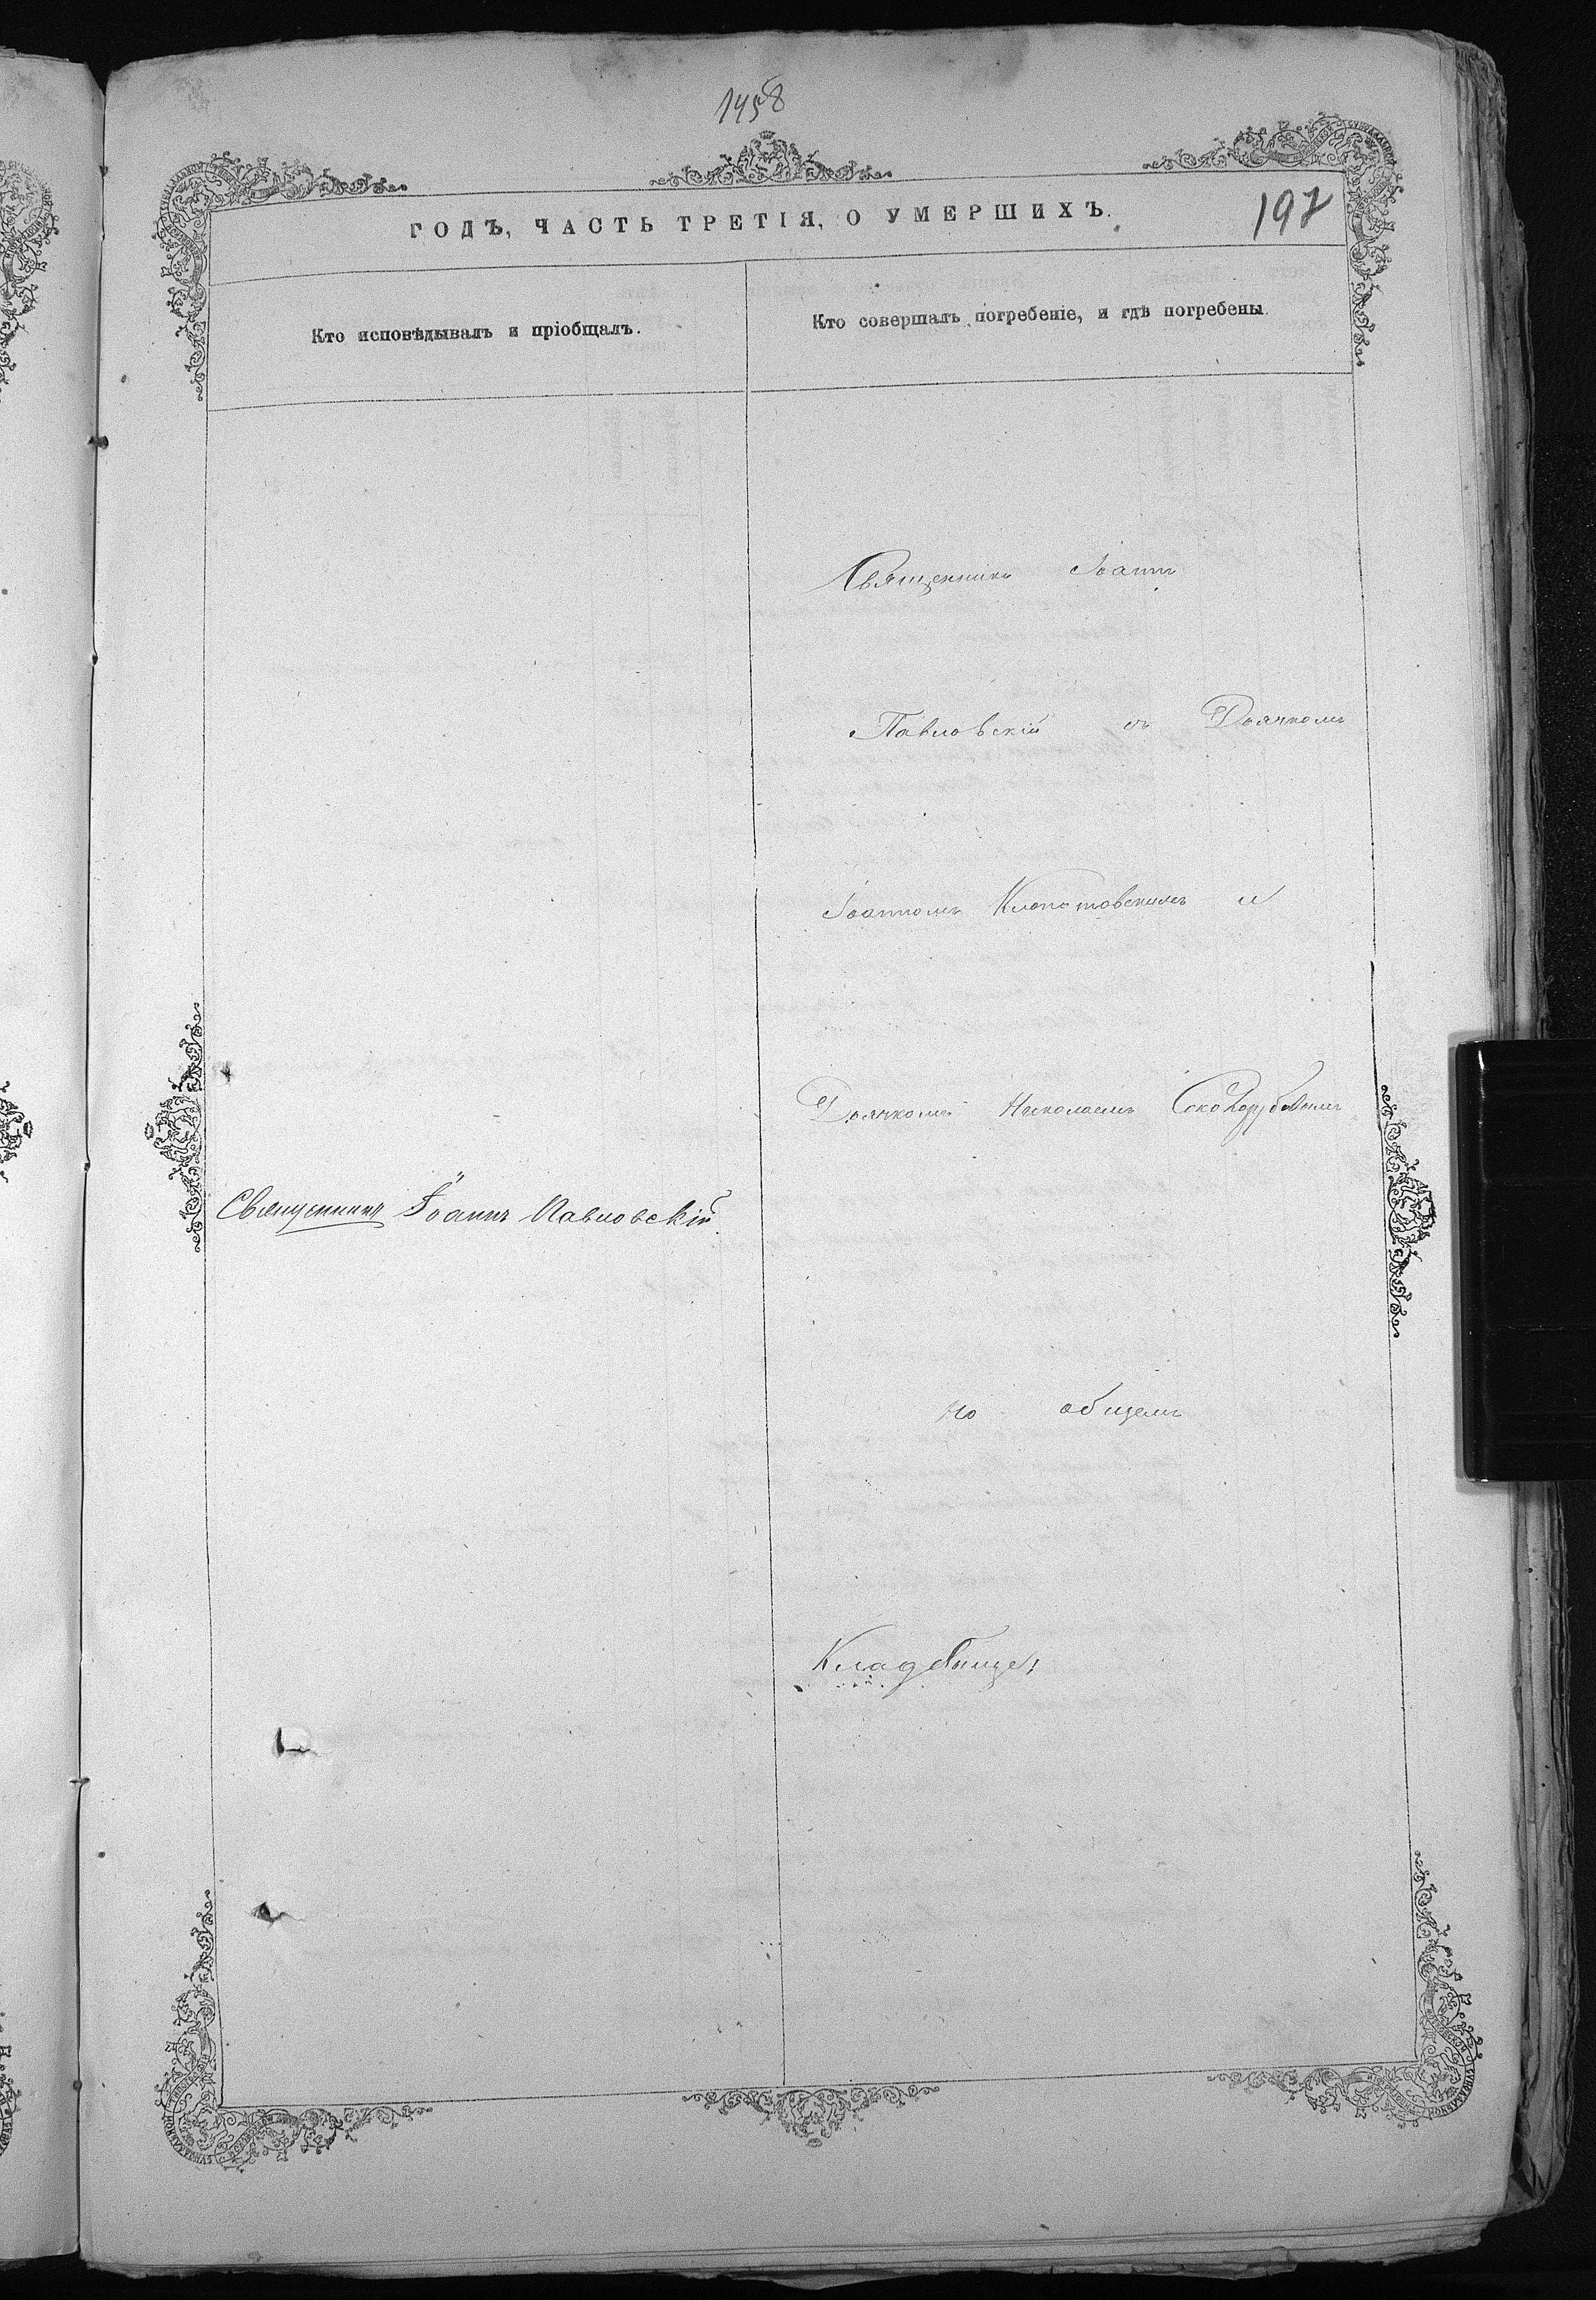 1458
197
ГОДЪ, ЧАСТЬ ТРЕТІЯ, О УМЕРШИХЪ.
Кто исповѣдывалъ и пріобщалъ.
Кто совершалъ погребеніе, и гдѣ погребены.
Священникъ Іоаннъ
Павловскій съ Дьячкомъ
Іоанномъ Клопотовскимъ и
Дьячкомъ Николаемъ
Священникъ Іоаннъ Павловскій
на общемъ
Кладбище,